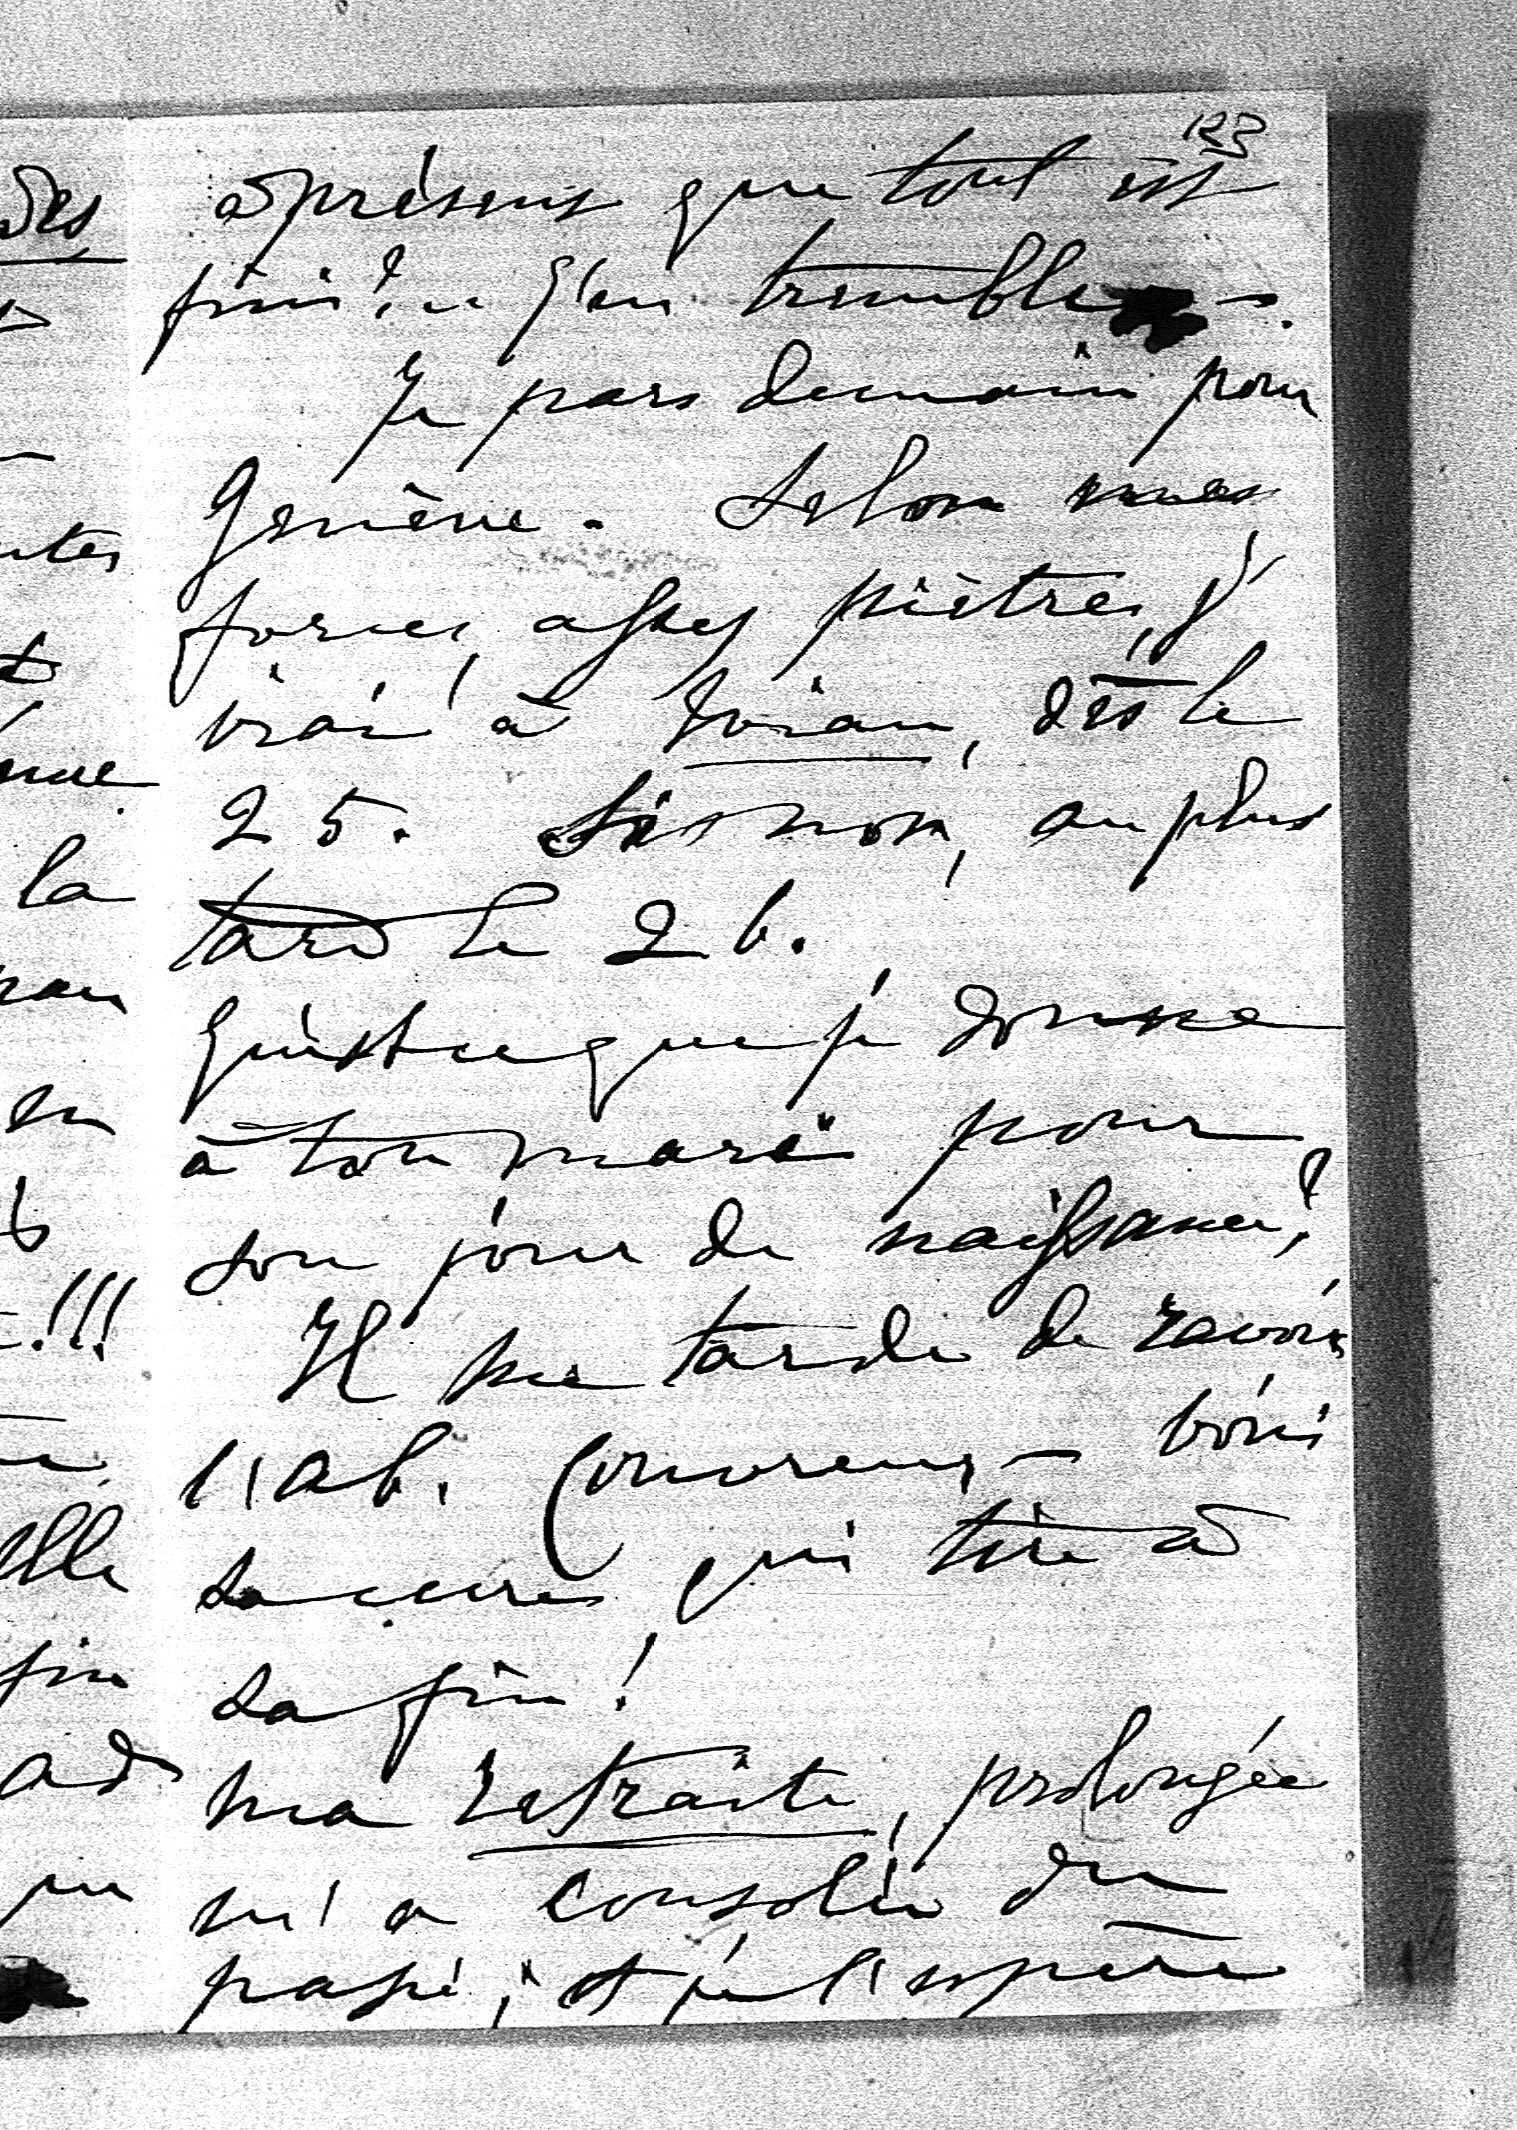 123
à présent que tout est
fini ? — j'en tremble —.
Je pars demain pour
Genève. Selon mes
forces, assez piètres, j'
irai à Divian, dès le
25. Sinon, au plus
tard le 26.
Qu'est-ce que je donne
à ton mari pour
son jour de naissance ?
Il me tarde de ravoir
l'ab. — voici
qui tire à
sa fin !
Ma retraite, prolongée
m'a consolée du
passé, et je l'espère
des
la
en
!!!
elle
fin